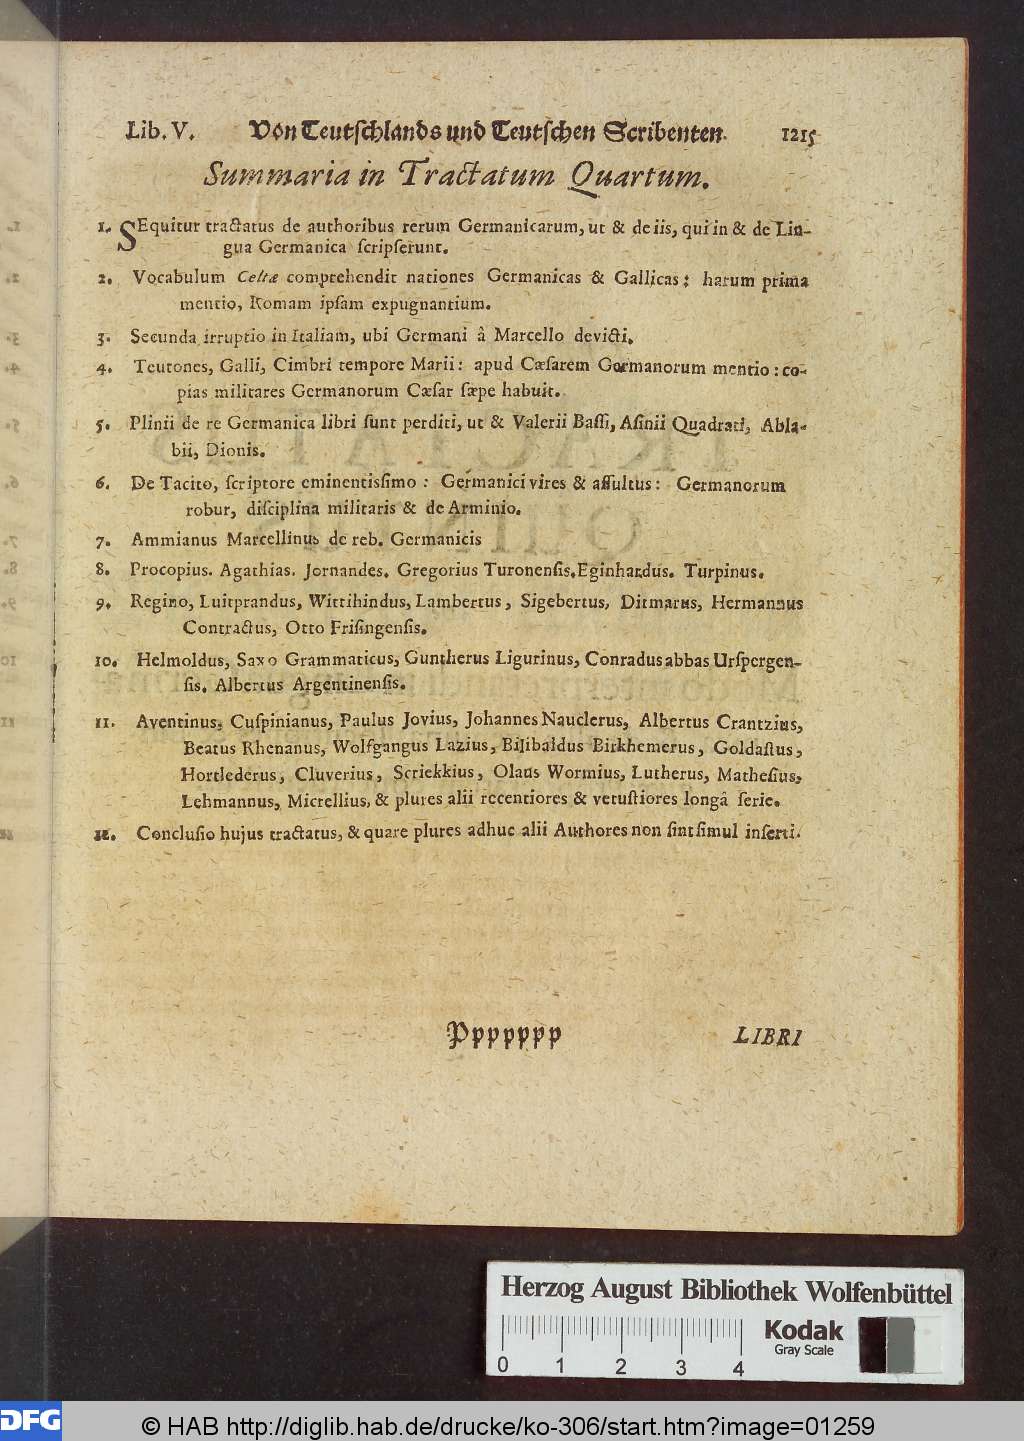 Lib. V. Von Teutſchlands und Teutſchen Scribenten. 1215
Summaria in Tractatum Quartum.
1. SEquitur tractatus de authoribus rerum Germanicarum, ut & de iis, qui in & de Lin-
gua Germanica ſcripſerunt.
2. Vocabulum Celtæ comprehendit nationes Germanicas & Gallicas: harum prima
mentio, Romam ipſam expugnantium.
3. Secunda irruptio in Italiam, ubi Germani â Marcello devicti.
4. Teutones, Galli, Cimbri tempore Marii: apud Cæſarem Germanorum mentio: co-
pias militares Germanorum Cæſar ſæpe habuit.
5. Plinii de re Germanica libri ſunt perditi, ut & Valerii Baſſi, Aſinii Quadrati, Abla-
bii, Dionis.
6. De Tacito, ſcriptore eminentiſſimo: Germanici vires & aſſultus: Germanorum
robur, diſciplina militaris & de Arminio.
7. Ammianus Marcellinus de reb. Germanicis
8. Procopius. Agathias. Jornandes. Gregorius Turonenſis. Eginhardus. Turpinus.
9. Regino, Luitprandus, Wittihindus, Lambertus, Sigebertus, Ditmarus, Hermannus
Contractus, Otto Friſingenſis.
10. Helmoldus, Saxo Grammaticus, Guntherus Ligurinus, Conradus abbas Urſpergen-
ſis. Albertus Argentinenſis.
11. Aventinus, Cuſpinianus, Paulus Jovius, Johannes Nauclerus, Albertus Crantzius,
Beatus Rhenanus, Wolfgangus Lazius, Bilibaldus Birkhemerus, Goldaſtus,
Hortlederus, Cluverius, Scriekkius, Olaus Wormius, Lutherus, Matheſius,
Lehmannus, Micrellius, & plures alii recentiores & vetuſtiores longâ ſerie.
12. Concluſio hujus tractatus, & quare plures adhuc alii Authores non ſint ſimul inſerti.
Ppppppp LIBRI
Herzog August Bibliothek Wolfenbüttel
Kodak
Gray Scale
0 1 2 3 4
DFG
© HAB http://diglib.hab.de/drucke/ko-306/start.htm?image=01259